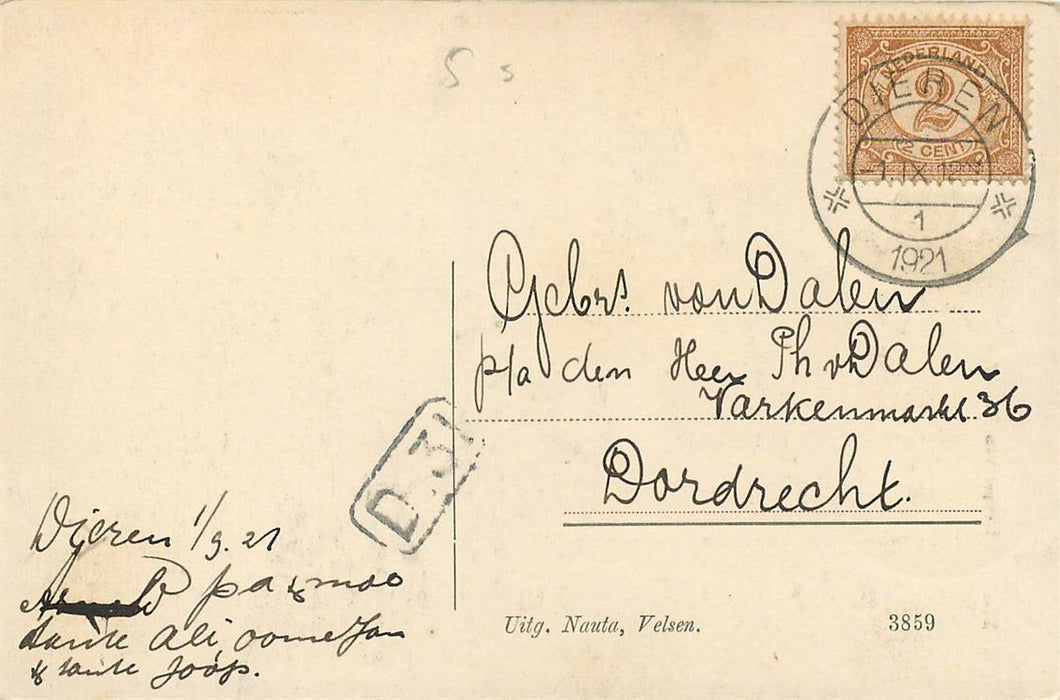 5 s
NEDERLAND
2
2 CENT
DIEREN
1.IX.12
1
1921
Gebrs. van Dalen
p/a den Heer Ph v Dalen
Varkenmarkt 36
Dordrecht.
D.31
Dieren 1/9.21
pa & moe
tante Ali, oome Jan
& tante Joop.
Uitg. Nauta, Velsen.
3859